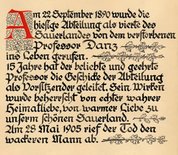 Am 22. September 1890 wurde die
hiesige Abteilung als vierte des
Sauerlandes von dem verstorbenen
Professor Danz
ins Leben gerufen.
15 Jahre hat der beliebte und geehrte
Professor die Geschicke der Abteilung
als Vorsitzender geleitet. Sein Wirken
wurde beherrscht von echter wahrer
Heimatliebe, von warmer Liebe zu
unserm schönen Sauerland.
Am 29. Mai 1905 rief der Tod den
wackeren Mann ab.